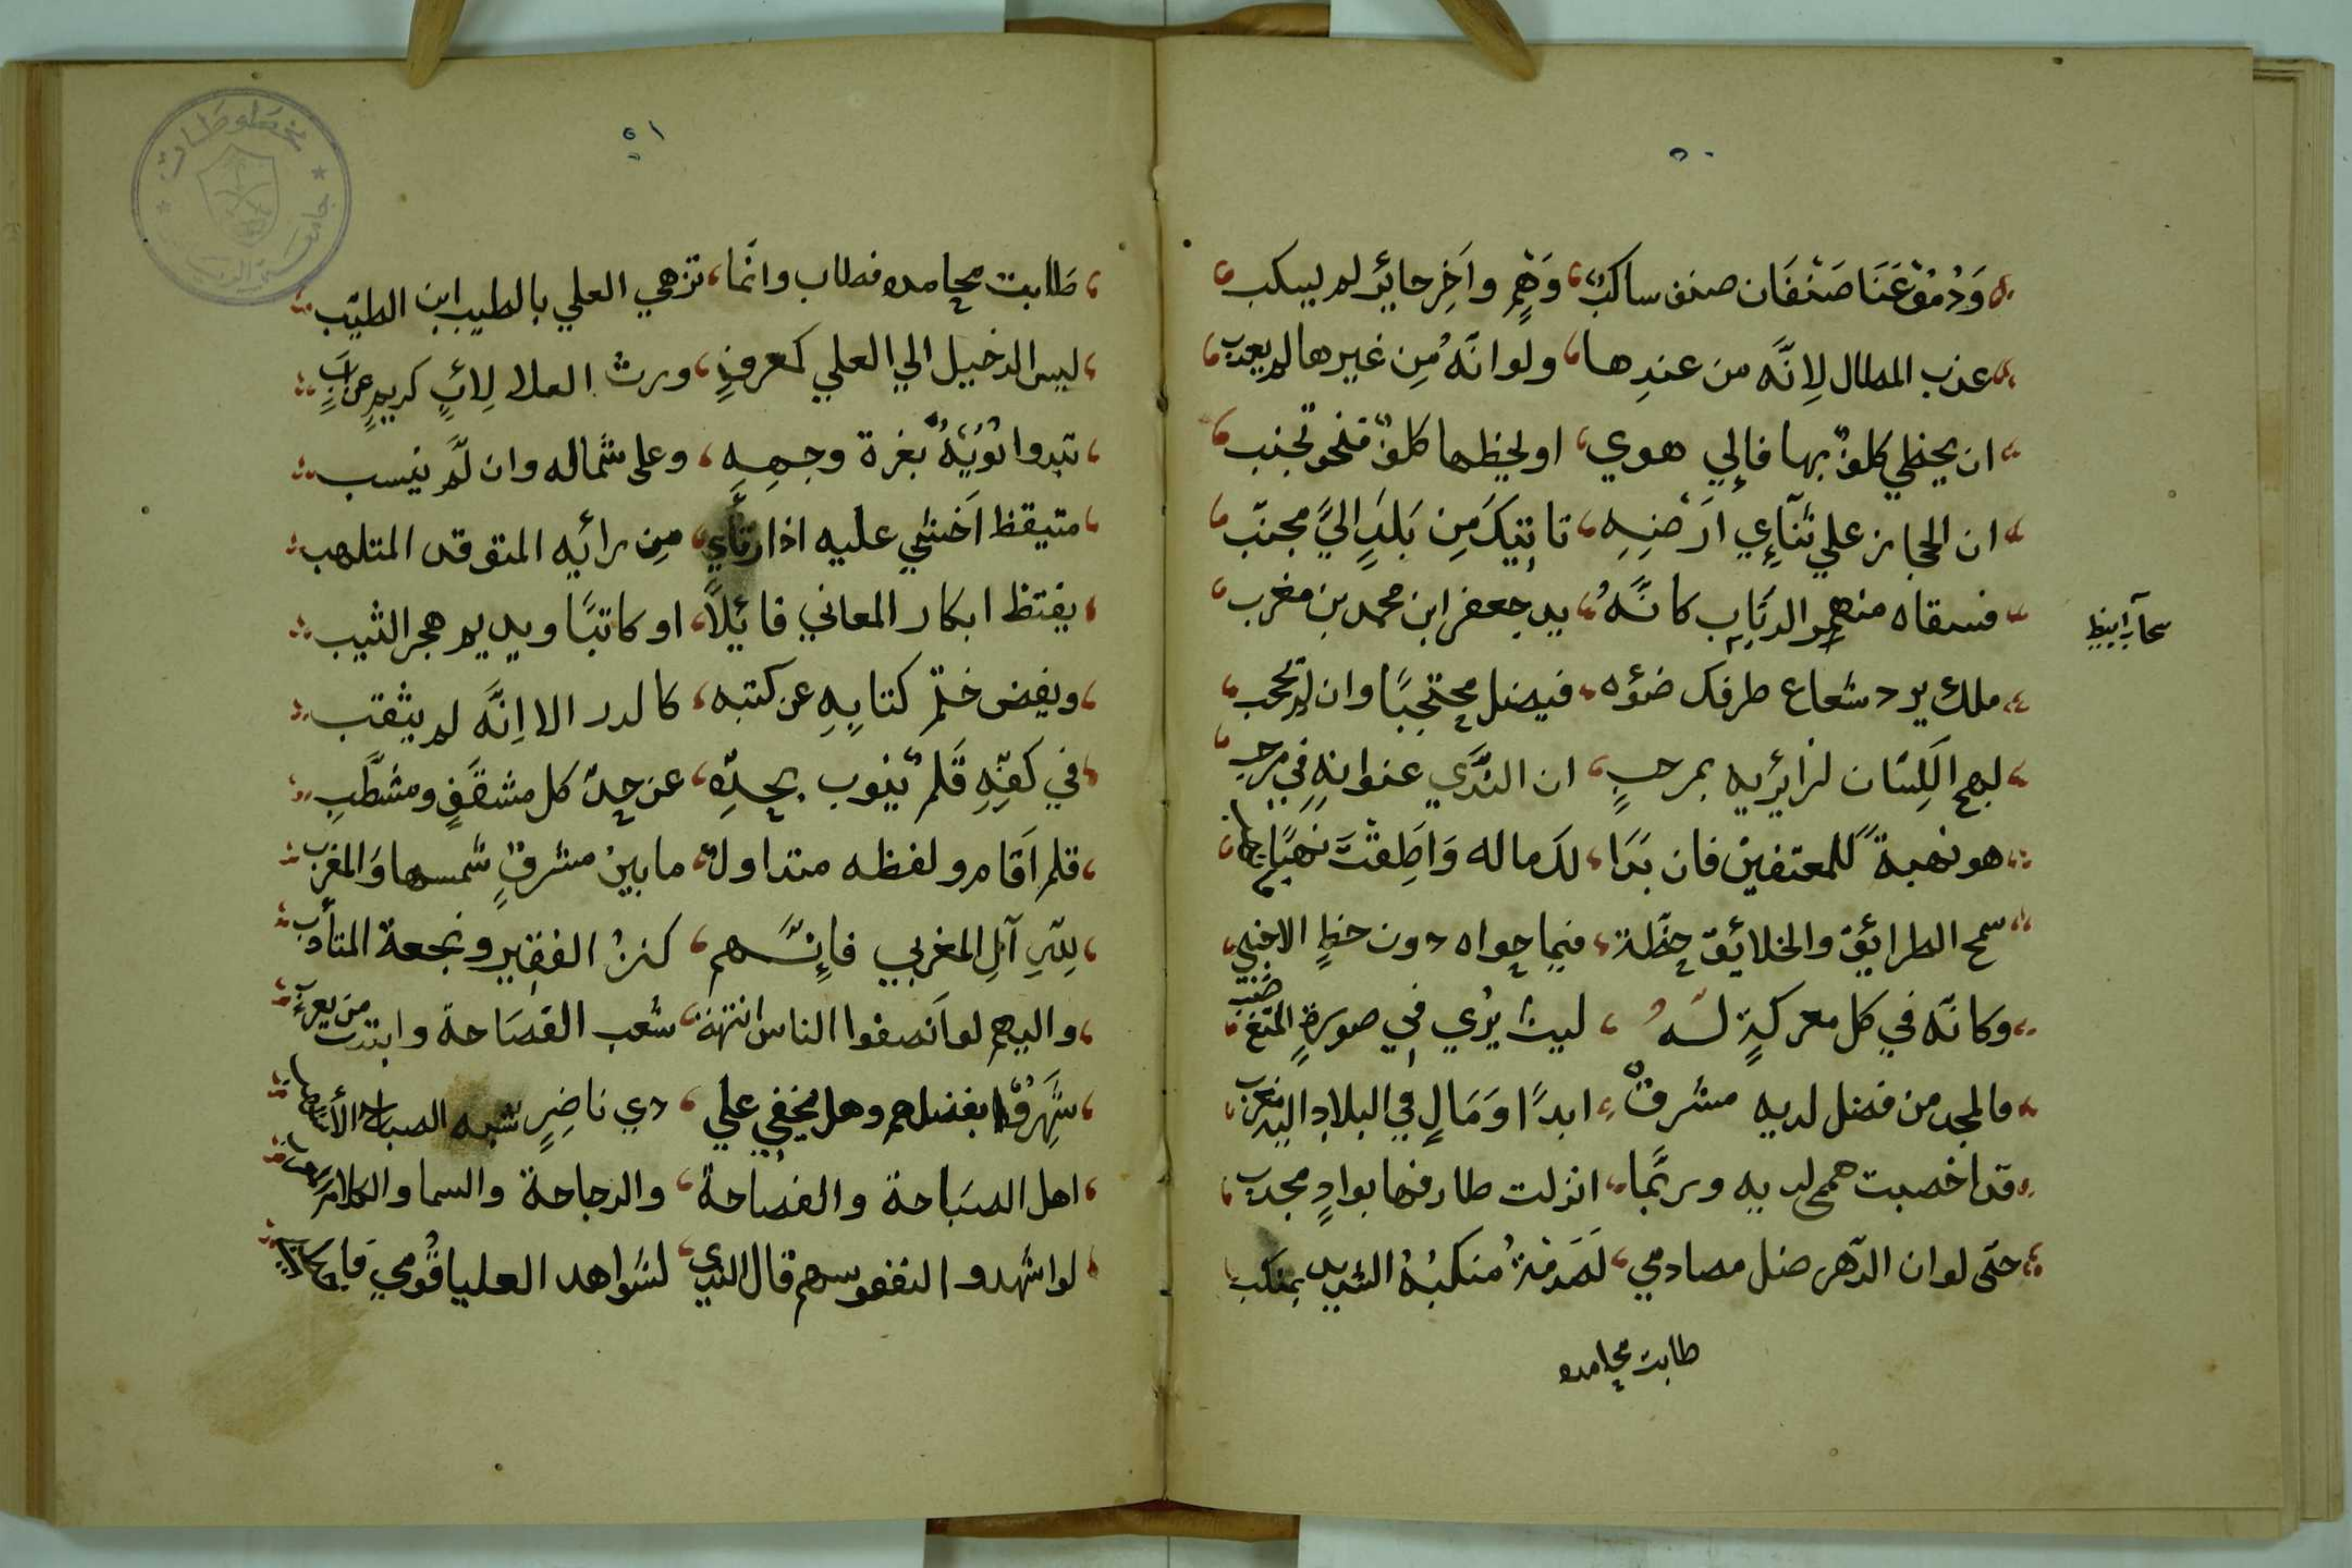 ٥٠
وَدُمُوعُنَا صَنْفَان صنف ساكبٌ وَهْمٍ واَخِر حائر لم يسكب
عذب المطال لِانَّه من عندِها ولو انَّهُ مِن غيرها لم يعذب
ان يحظي كلفٌ بها فالِي هوي او لحظها كلفٌ فنحو تجنب
ان الحجاز علي تنآءِي اَرْضِهِ تاتيكَ مِن بَلَدٍ اليَّ مجنّب
فسقاه منهمر الرَبَاب كانَّهُ يد جعفر ابن محمد بن مغرب
سحآب ابيض
ملك يرد شعاع طرفك ضؤه فيضل محتجبًا وان لم يحجب
لهج اللِسَان لزائريه بمرحبٍ ان النَّدَي عنوانهِ في مرحبِ
هو نهبةً للمعتفين فان بَدَا لك ماله وَاَطِقْتَ نَهْبًا
سمح الطرائق والخلائق حظّه فيما حواه دون حظِ الاجنبي
وكانَّه في كل معركةٍ لَهُ ليث يرُي في صورةِ المتغضّب
مالمجد من فضل لديه مشرقٌ ابدًا وَمَالٍ في البلاد
قد اخصبت هممي لديه وربَّما انزلت طارفها بوادٍ مجدب
حتّى لو ان الدّهر ضل مصادمي لَصَدَمْتُ منكبُهُ الشديد بمنكب
طابت محامده
٥١
طَابت محامده فطاب وانَّما تزهي العلي بالطيب ابن الطيّب
ليس الدخيل الي العلي كمعرفٍ ورث العلا لِابٍ كريمٍ عن ابٍ
تبدوا بغرة وجهِهِ وعلى شمَاله وان لَّم ينسب
متيقظ اَخشي عليه اذا ارتأَي مِن رائيه المتوقد المتلهب
يفتظ ابكار المعاني قائِلاً او كاتبًا ويديم هجر الثيب
ويفض ختْمُ كتابِهِ عن كتبه كالدر الا اِنَّه لم يثقب
في كفّهِ قَلمٌ ينوب بحدِّهِ عن حدّ كل مشقّفٍ ومشطّبِ
قلم اَقام ولفظه متداولٌ مابين مشرقِ شمسها وَالمغرب
لِلّهِ آلِ المغربي فاِنَّهم كنزُ الفقير ونجعة المتأدب
واليهم لو اَنصفوا الناس انتهت شعب الفصَاحة وابتدت من يعربٍ
شَهِرُوْا بفضلهم وهل يخفي علي ذي ناضِرٍ شبه الصباح
اهل الصبَاحة والفصاحة والرجاحة والسما والكلام
لو اشهدوا النفوسهم قال الندي لشواهد العليا قُومي
مخطوطات جامعة